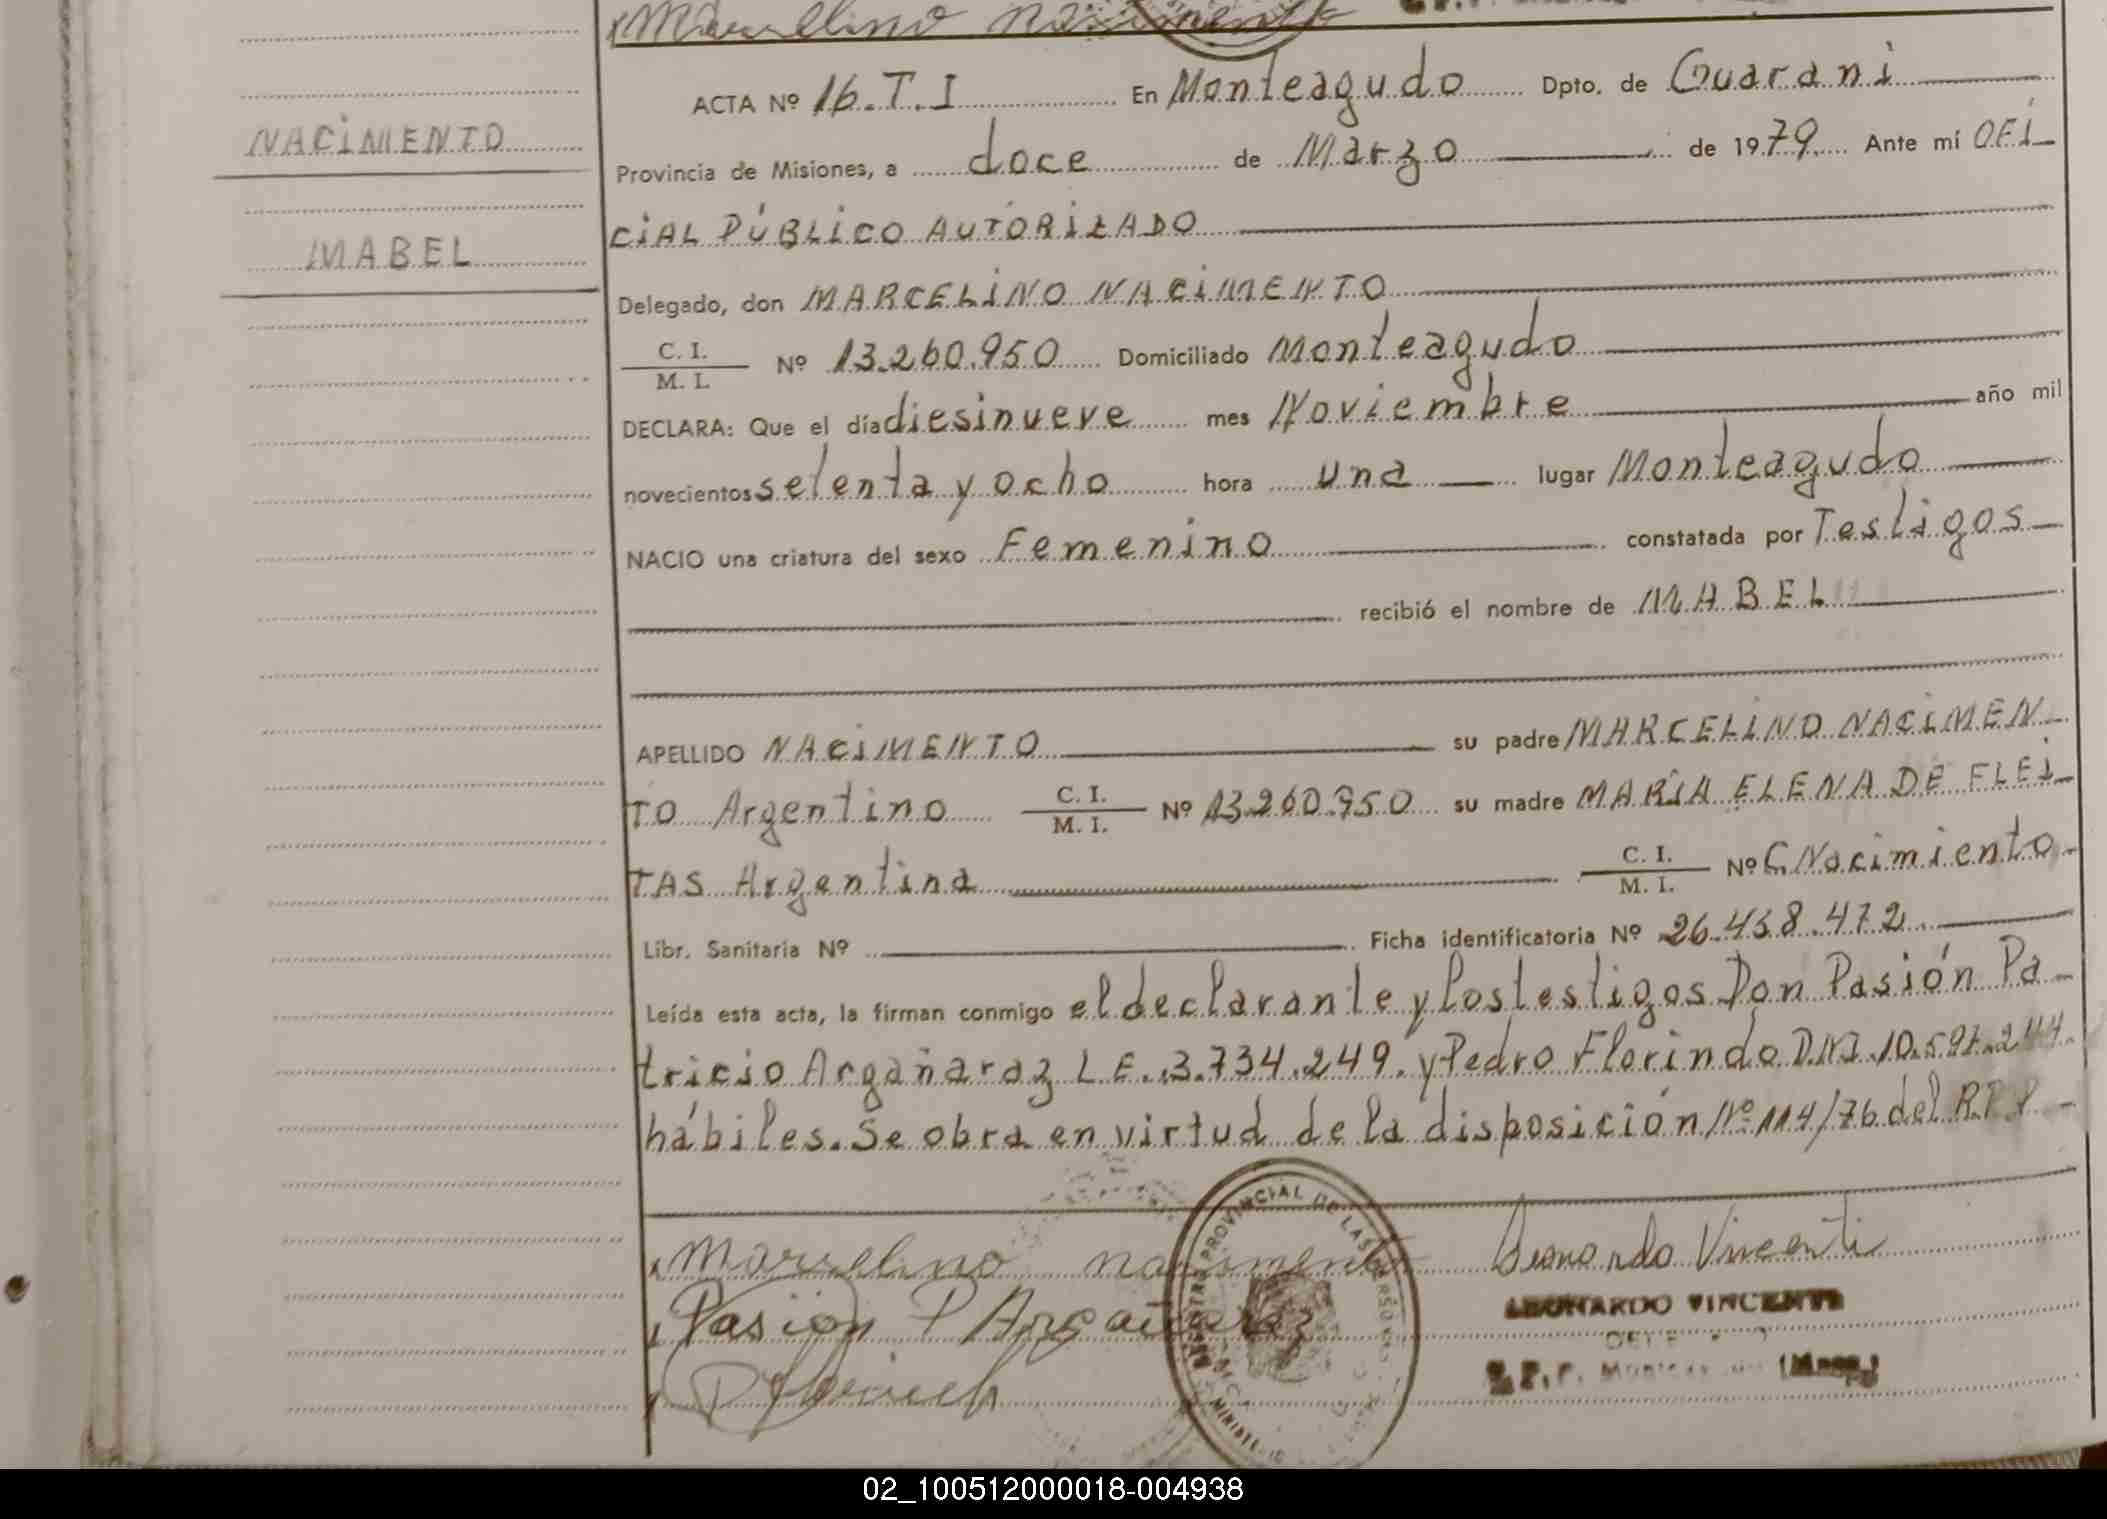 Marcelino nacimento
NACIMENTO
MABEL
ACTA Nº 16.T.I En Monteagudo Dpto. de Guarani
Provincia de Misiones, a doce de Marzo de 1979. Ante mí OFI
CIAL PÚBLICO AUTORIZADO
Delegado, don MARCELINO NACIMENTO
C. I.
M. I. Nº 13.260.950 Domiciliado Monteagudo
DECLARA: Que el día diesinueve mes Noviembre año mil
novecientos setenta y ocho hora una lugar Monteagudo
NACIO una criatura del sexo Femenino constatada por Testigos
recibió el nombre de MABEL
APELLIDO NACIMENTO su padre MARCELINO NACIMEN
TO Argentino C. I.
M. I. Nº 13.260.950 su madre MARÍA ELENA DE FLEI
TAS Argentina C. I.
M. I. Nº C.Nacimiento
Libr. Sanitaria Nº Ficha identificatoria Nº 26.458.472
Leída esta acta, la firman conmigo el declarante y los testigos Don Pasión Pa
tricio Argañaraz L.E. 3.734.249. y Pedro Florindo D.N.I. 10.597.244
hábiles. Se obra en virtud de la disposición Nº 114/76 del R.P.P
Marcelino nacimento
Leonardo Vincenti
Pasión P Argañaraz
LEONARDO VINCENTI
REGISTRO PROVINCIAL DE LAS PERSONAS
02_100512000018-004938